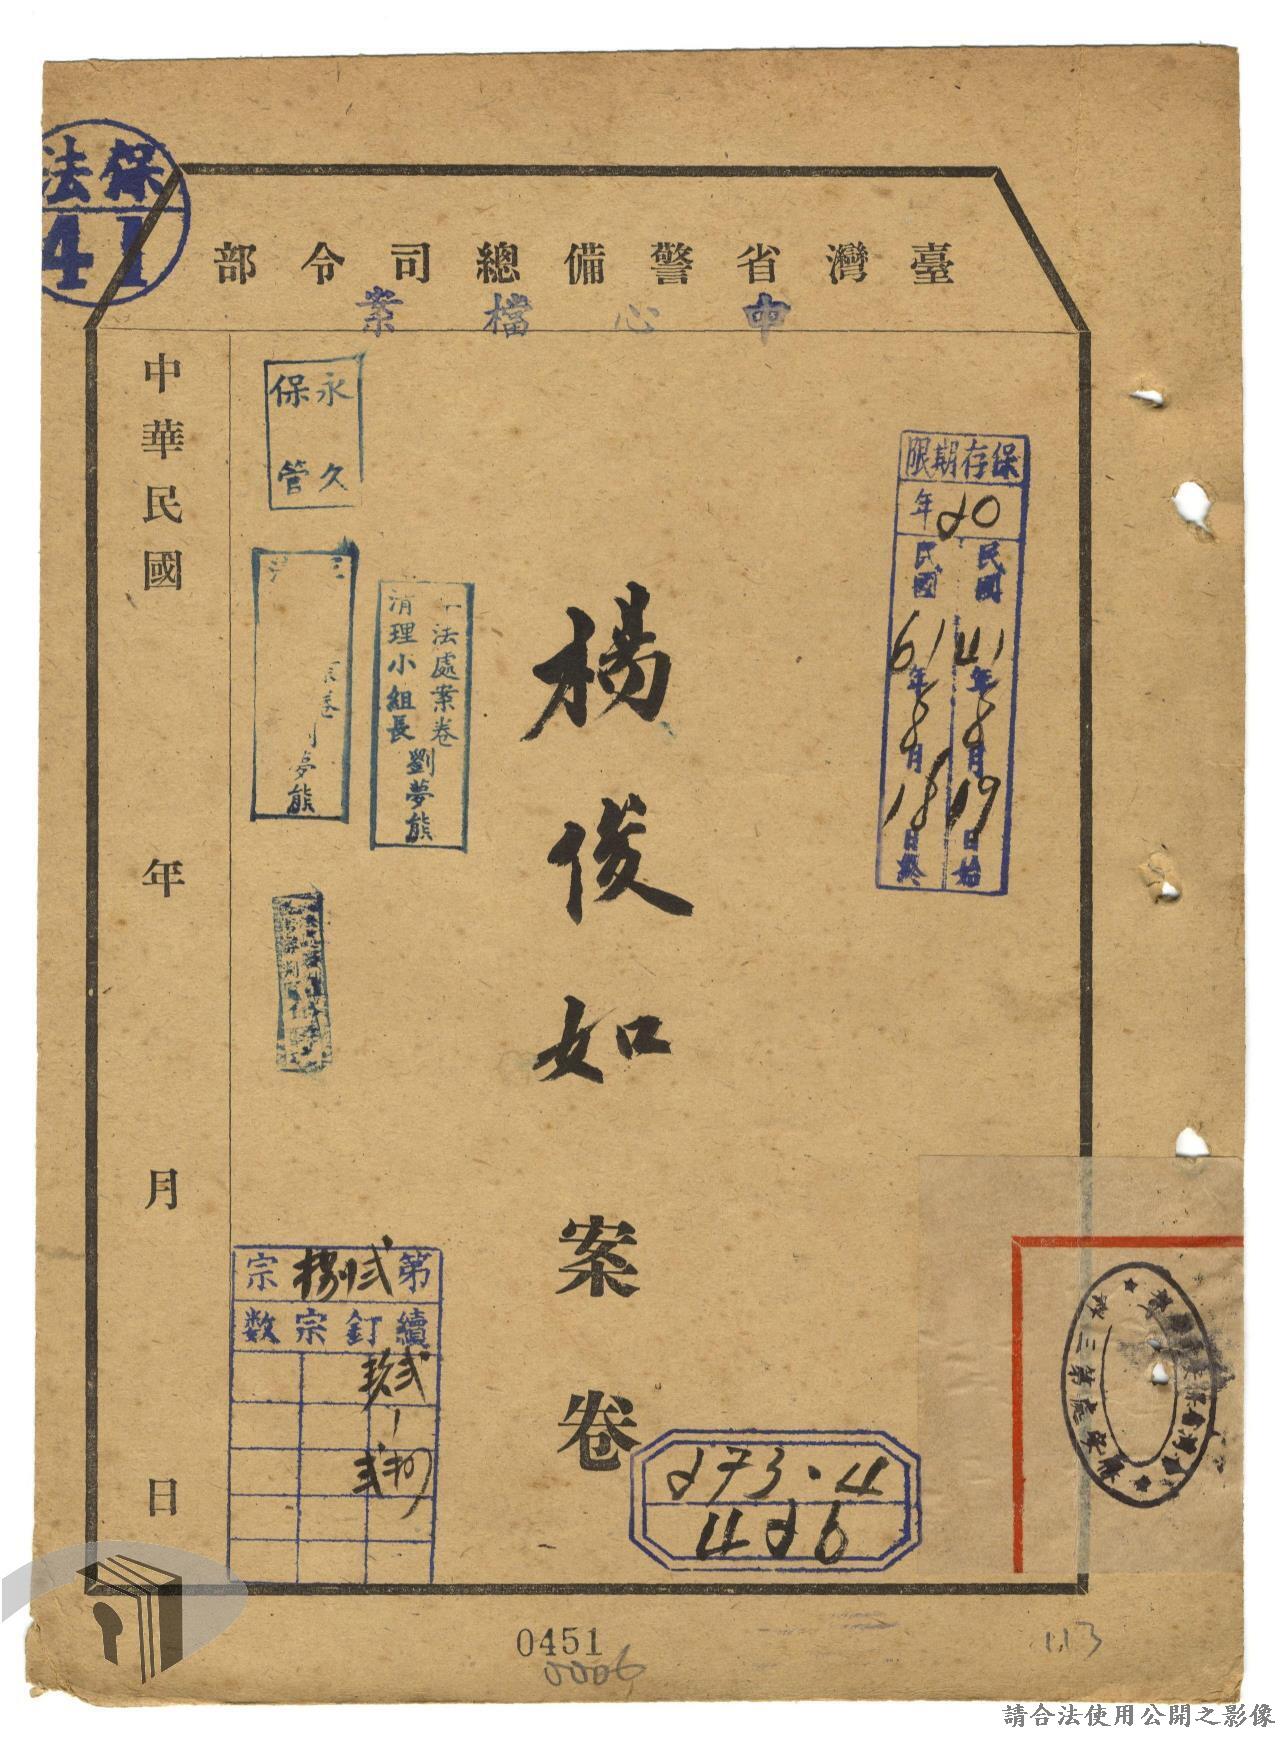 保法
41
臺灣省警備總司令部
中心檔案
保存期限
20年
民國41年8月19日始
民國61年8月18日終
楊俊如案卷
永久
保管
法處案卷
清理小組長 劉夢熊
夢熊
中華民國 年 月 日
第 宗
續釘宗數
273.4
426
第三
0451
0006
113
請合法使用公開之影像